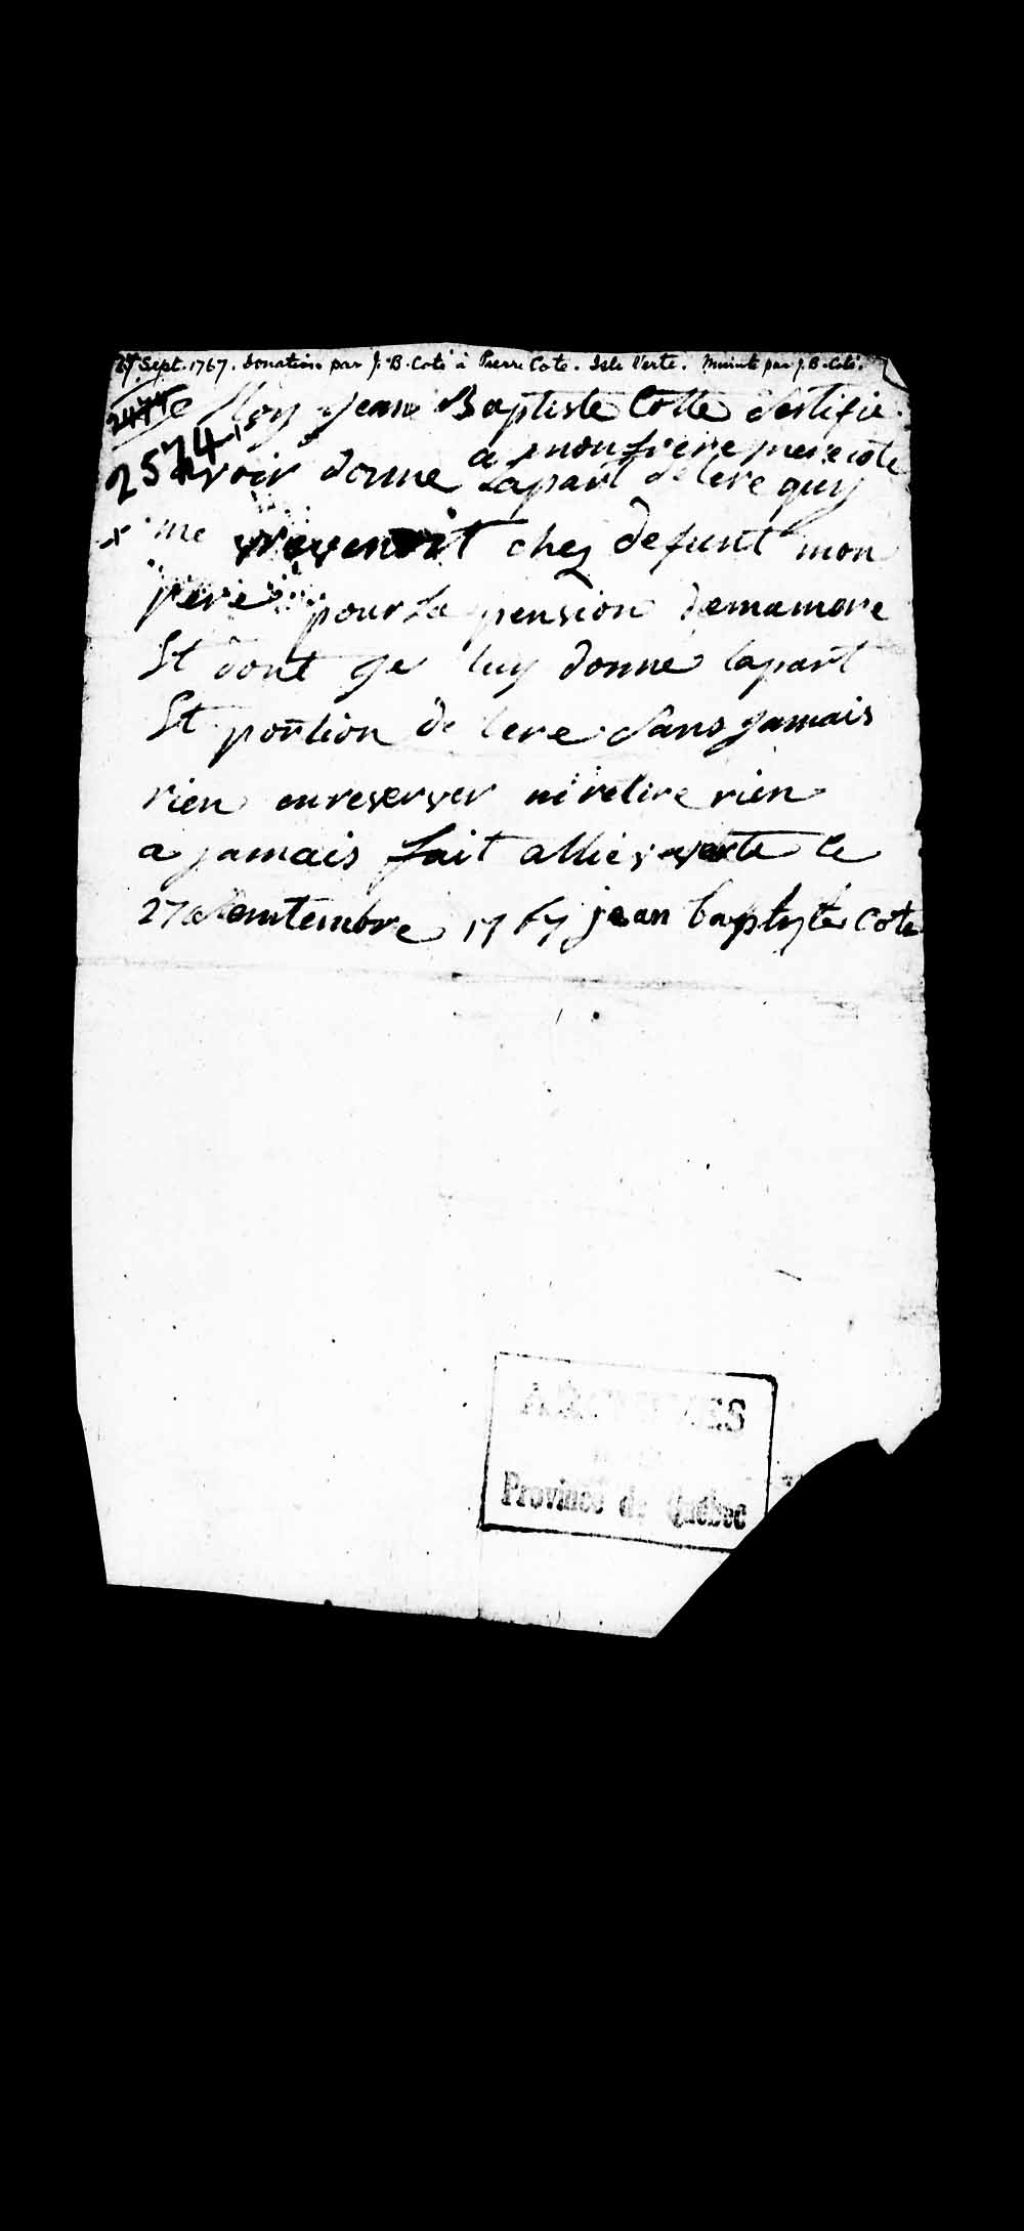 27 Sept. 1767. Donation par J. B. Coté à Pierre Cote. Isle Verte. Minute par J. B. Coté.
2474
2574
Moy Jean Baptiste Cotte Sertifie
a mon frere piere cote
avoir donne Lapart de tere quy
x me revenoit chez defunt mon
pere pour La pension demamere
Et dont ge luy donne lapart
Et portion de tere Sans gamais
rien enreserver ni retire rien
a jamais fait allisleverte le
27 1767 jean baptyte cote
ARCHIVES
Province de Québec